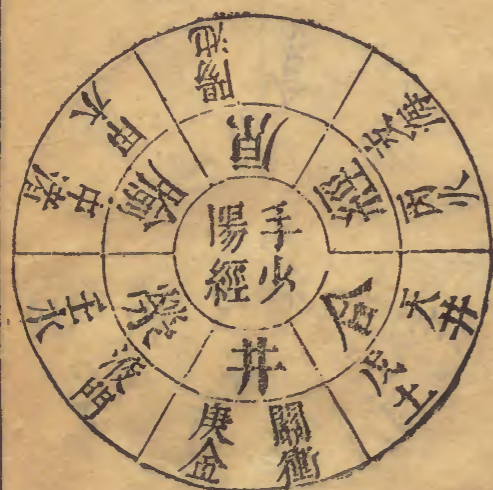 手少
陽經
井
關衝
庚金
滎
液門
壬水
腧
中渚
甲木
原
陽池
經
支溝
丙火
合
天井
戊土